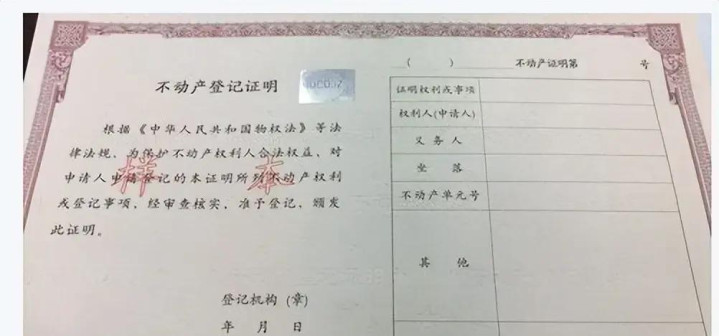 不动产登记证明
根据《中华人民共和国物权法》等法
律法规，为保护不动产权利人合法权益，对
申请人申请登记的本证明所列不动产权利
或登记事项，经审查核实，准予登记，颁发
此证明。
样本
登记机构（章）
年 月 日
（ ） 不动产证明第 号
证明权利或事项
权利人(申请人)
义务人
坐落
不动产单元号
其他